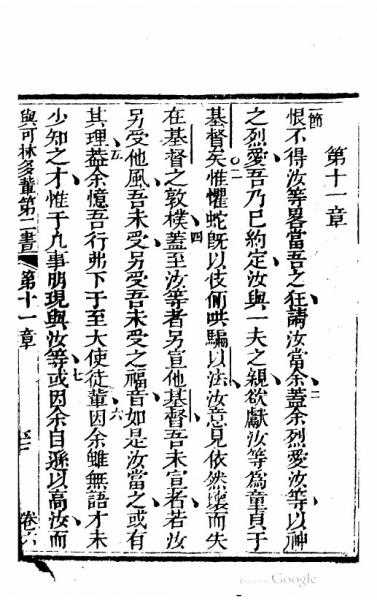 第十一章
一節
恨不得汝等畧當吾之狂請汝當余蓋余烈愛汝等以神
二
之烈愛吾乃已約定汝與一夫之親欲獻汝等爲童貞于
三
基督矣惟懼蛇旣以伎俩哄騙以法汝意見依然壞而失
四
在基督之敦樸蓋至汝等者另宣他基督吾未宣者若汝
另受他風吾未受另受吾未受之福音如是汝當之或有
五 六
其理蓋余憶吾行弗下于至大使徒輩因余雖無語才未
七
少知之才惟于凡事朋現與汝等或因余自遜以高汝而
與可林多輩第二書 第十一章 卷六
Google